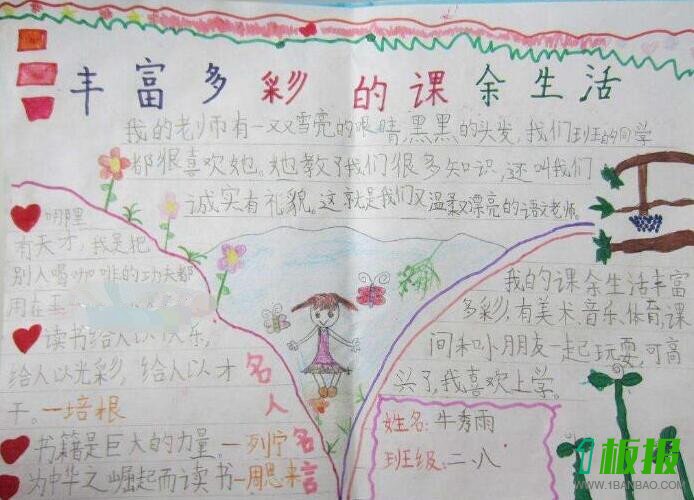 丰富多彩的课余生活
我的老师有一双雪亮的眼睛黑黑的头发,我们班的同学
都很喜欢她。她教了我们很多知识,还叫我们
诚实有礼貌。这就是我们又温柔又漂亮的语文老师。
哪里
有天才,我是把
别人喝咖啡的功夫都
用在
读书给人以乐,
给人以光彩,给人以才
干。一培根
书籍是巨大的力量。一列宁
为中华之崛起而读书一周恩来
名人名言
我的课余生活丰富
多彩,有美术、音乐、体育,课
间和小朋友一起玩耍,可高
兴了,我喜欢上学。
姓名:牛秀雨
班级:二.八
1板报
WWW.1BANBAO.COM